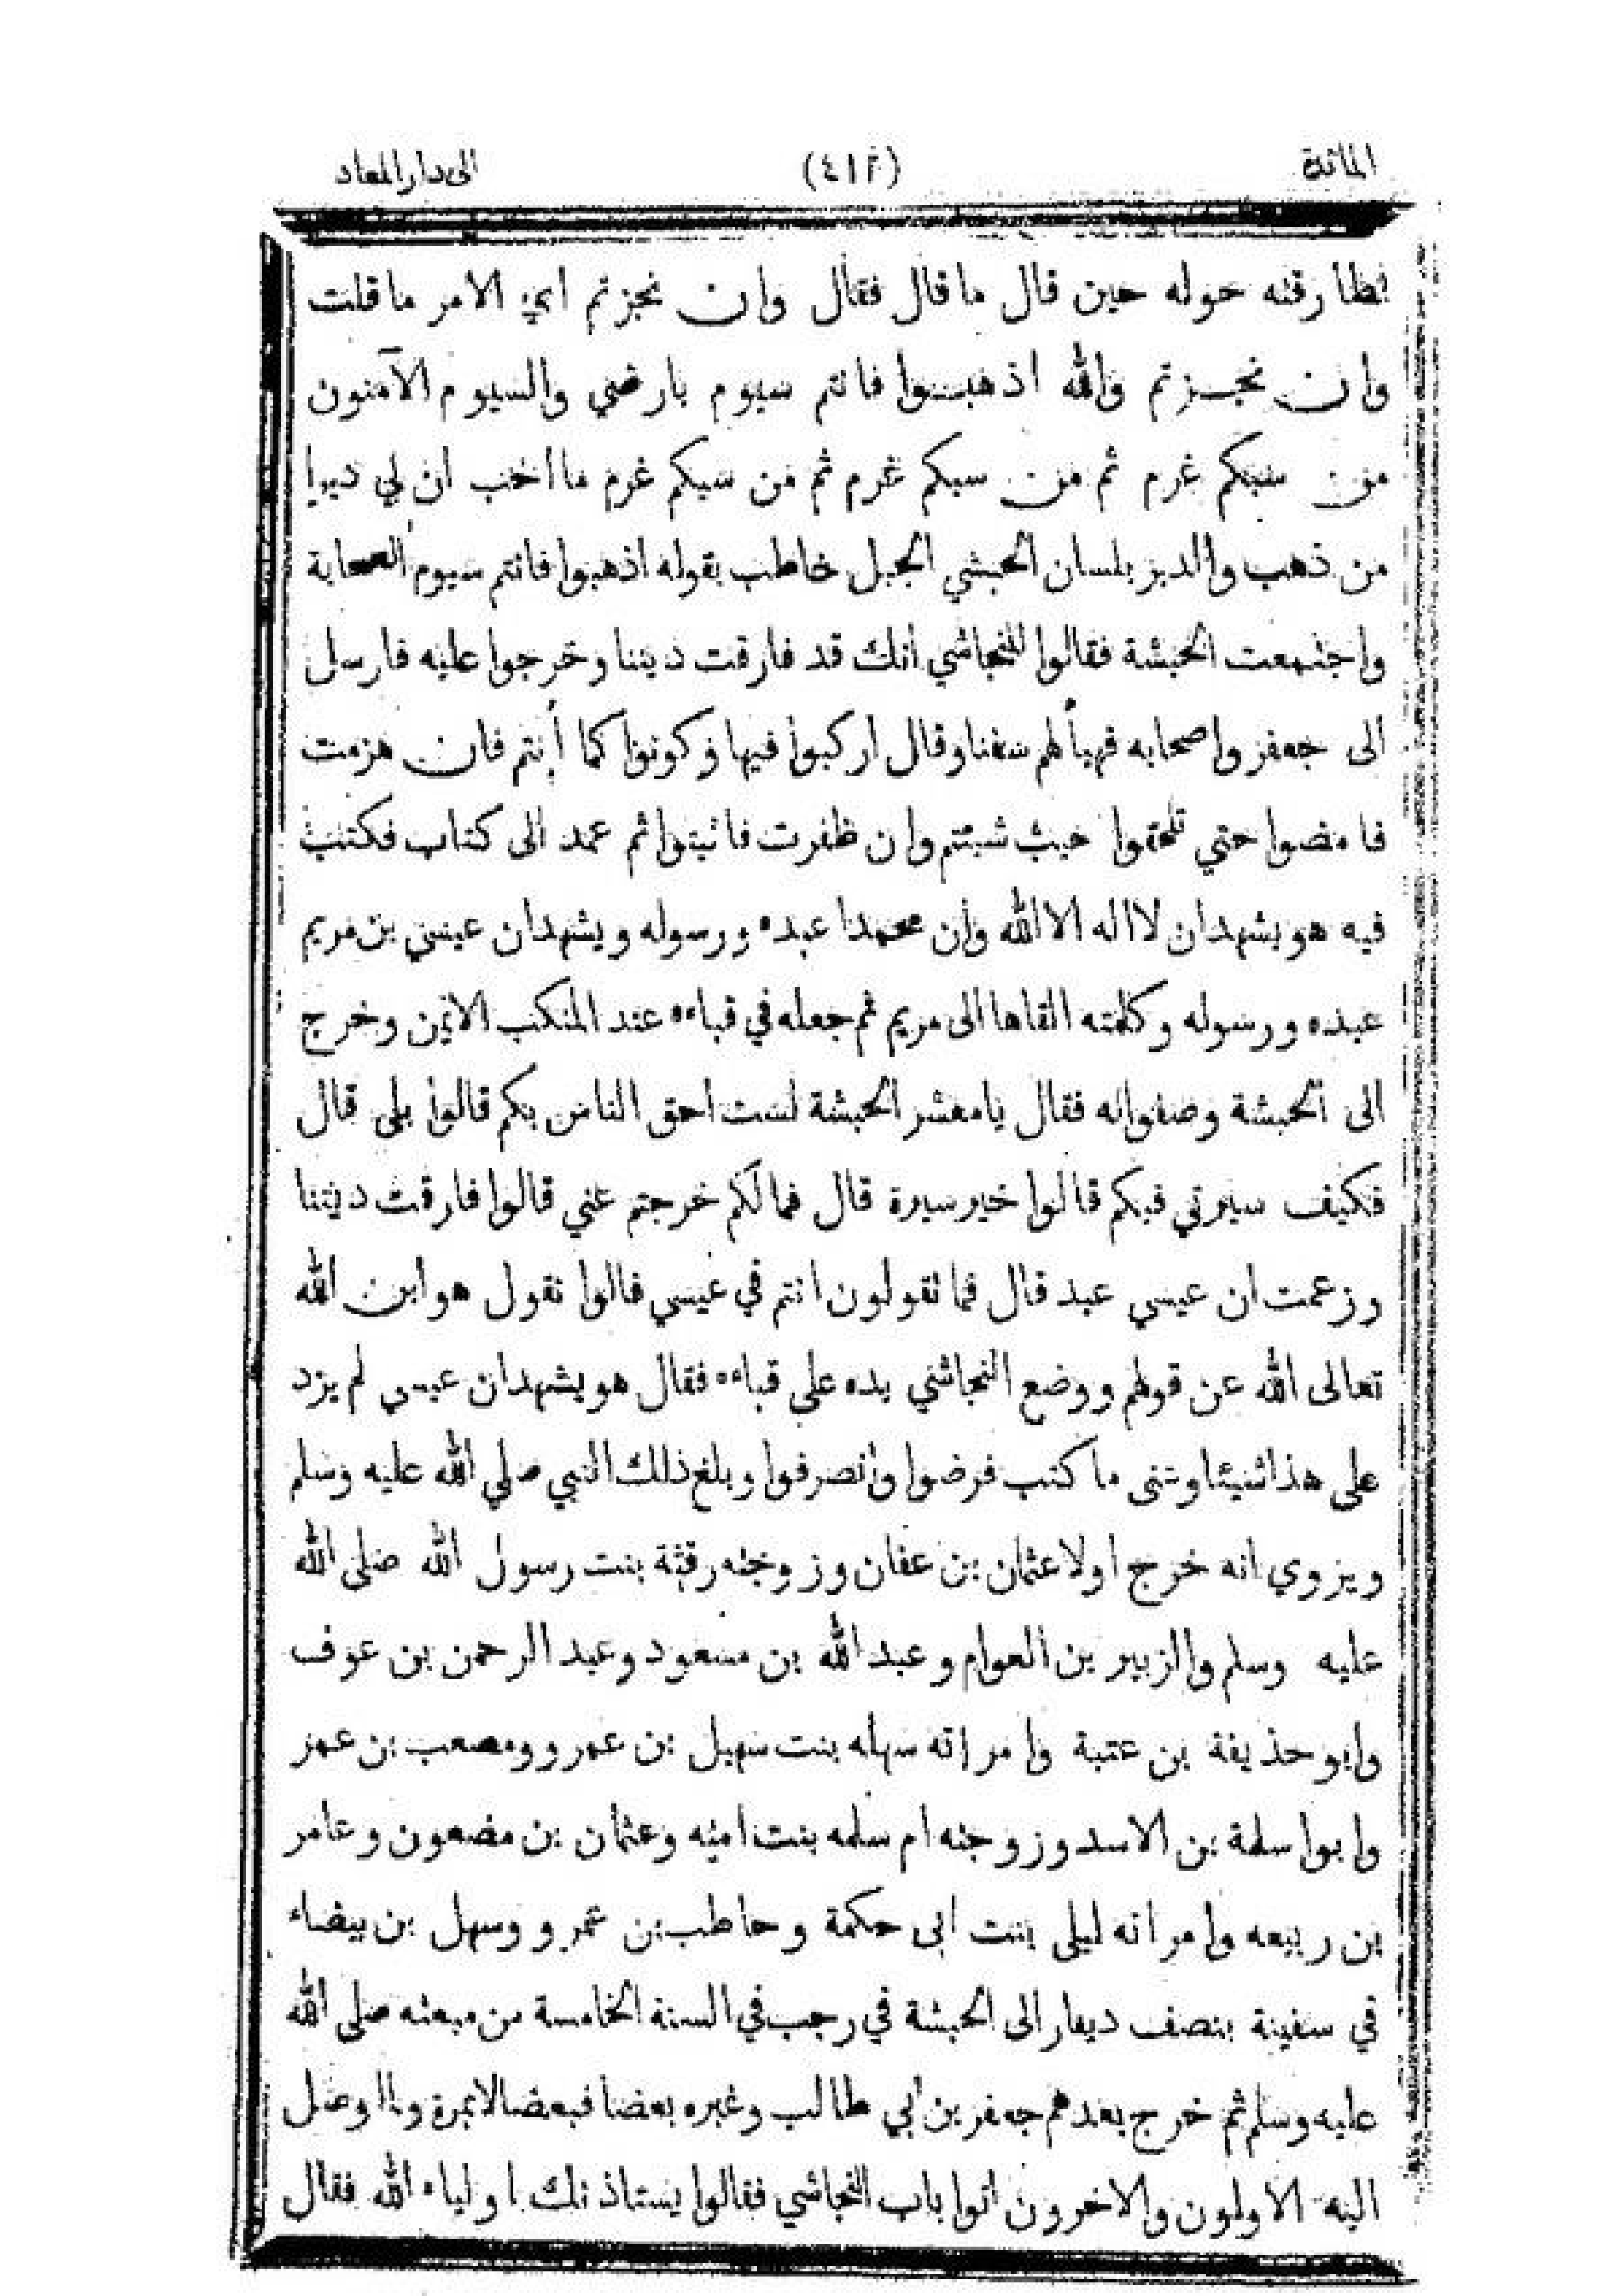 المائدة (٤١٢) الى دار المعاد
بطارقته حوله حين قال ما قال فقال وان نجزتم اي الامر ما قلت
وان نجزتم والله اذهبوا فانتم سيوم بارضي والسيوم الآمنون
من سبكم غرم ثم من سبكم غرم ثم من سبكم غرم ما احب ان لي ديرا
من ذهب والدبر بلسان الحبشي الجبل خاطب بقوله اذهبوا فانتم سيوم الصحابة
واجتمعت الحبشة فقالوا للنجاشي انك قد فارقت ديننا وخرجوا عليه فارسل
الى جعفر واصحابه فهيأ لهم سفنا وقال اركبوا فيها وكونوا كما أنتم فان هزمت
فامضوا حتي تلحقوا حيث شئتم وان ظفرت فاثبتوا ثم عمد الى كتاب فكتب
فيه هو يشهد ان لا اله الا الله وأن محمدا عبده ورسوله ويشهد ان عيسي بن مريم
عبده ورسوله وكلمته القاها الى مريم ثم جعله في قباءه عند المنكب الايمن وخرج
الى الحبشة وصفوا له فقال يا معشر الحبشة لست احق الناس بكم قالوا بلى قال
فكيف سيرتي فيكم قالوا خير سيرة قال فما لكم خرجتم عني قالوا فارقت ديننا
وزعمت ان عيسي عبد قال فما تقولون انتم في عيسي قالوا نقول هو ابن الله
تعالى الله عن قولهم ووضع النجاشي يده على قباءه فقال هو يشهد ان عيسى لم يزد
على هذا شيئا وعنى ما كتب فرضوا وانصرفوا وبلغ ذلك النبي صلي الله عليه وسلم
ويروي انه خرج اولا عثمان بن عفان وزوجته رقية بنت رسول الله صلى الله
عليه وسلم والزبير بن العوام وعبد الله بن مسعود وعبد الرحمن بن عوف
وابو حذيفة بن عتبة وامراته سهله بنت سهيل بن عمرو ومصعب بن عمر
وابوا سلمة بن الاسد وزوجته ام سلمه بنت اميه وعثمان بن مضعون وعامر
بن ربيعه وامراته ليلى بنت ابى حكمة وحاطب بن عمرو وسهل بن بيضاء
في سفينة بنصف دينار الى الحبشة في رجب في السنة الخامسة من مبعثه صلى الله
عليه وسلم ثم خرج بعدهم جعفر بن ابي طالب وغيره بعضا فبعضا لا بمرة ولما وصل
اليه الاولون والاخرون اتوا باب النجاشي فقالوا يستاذنك اولياء الله فقال